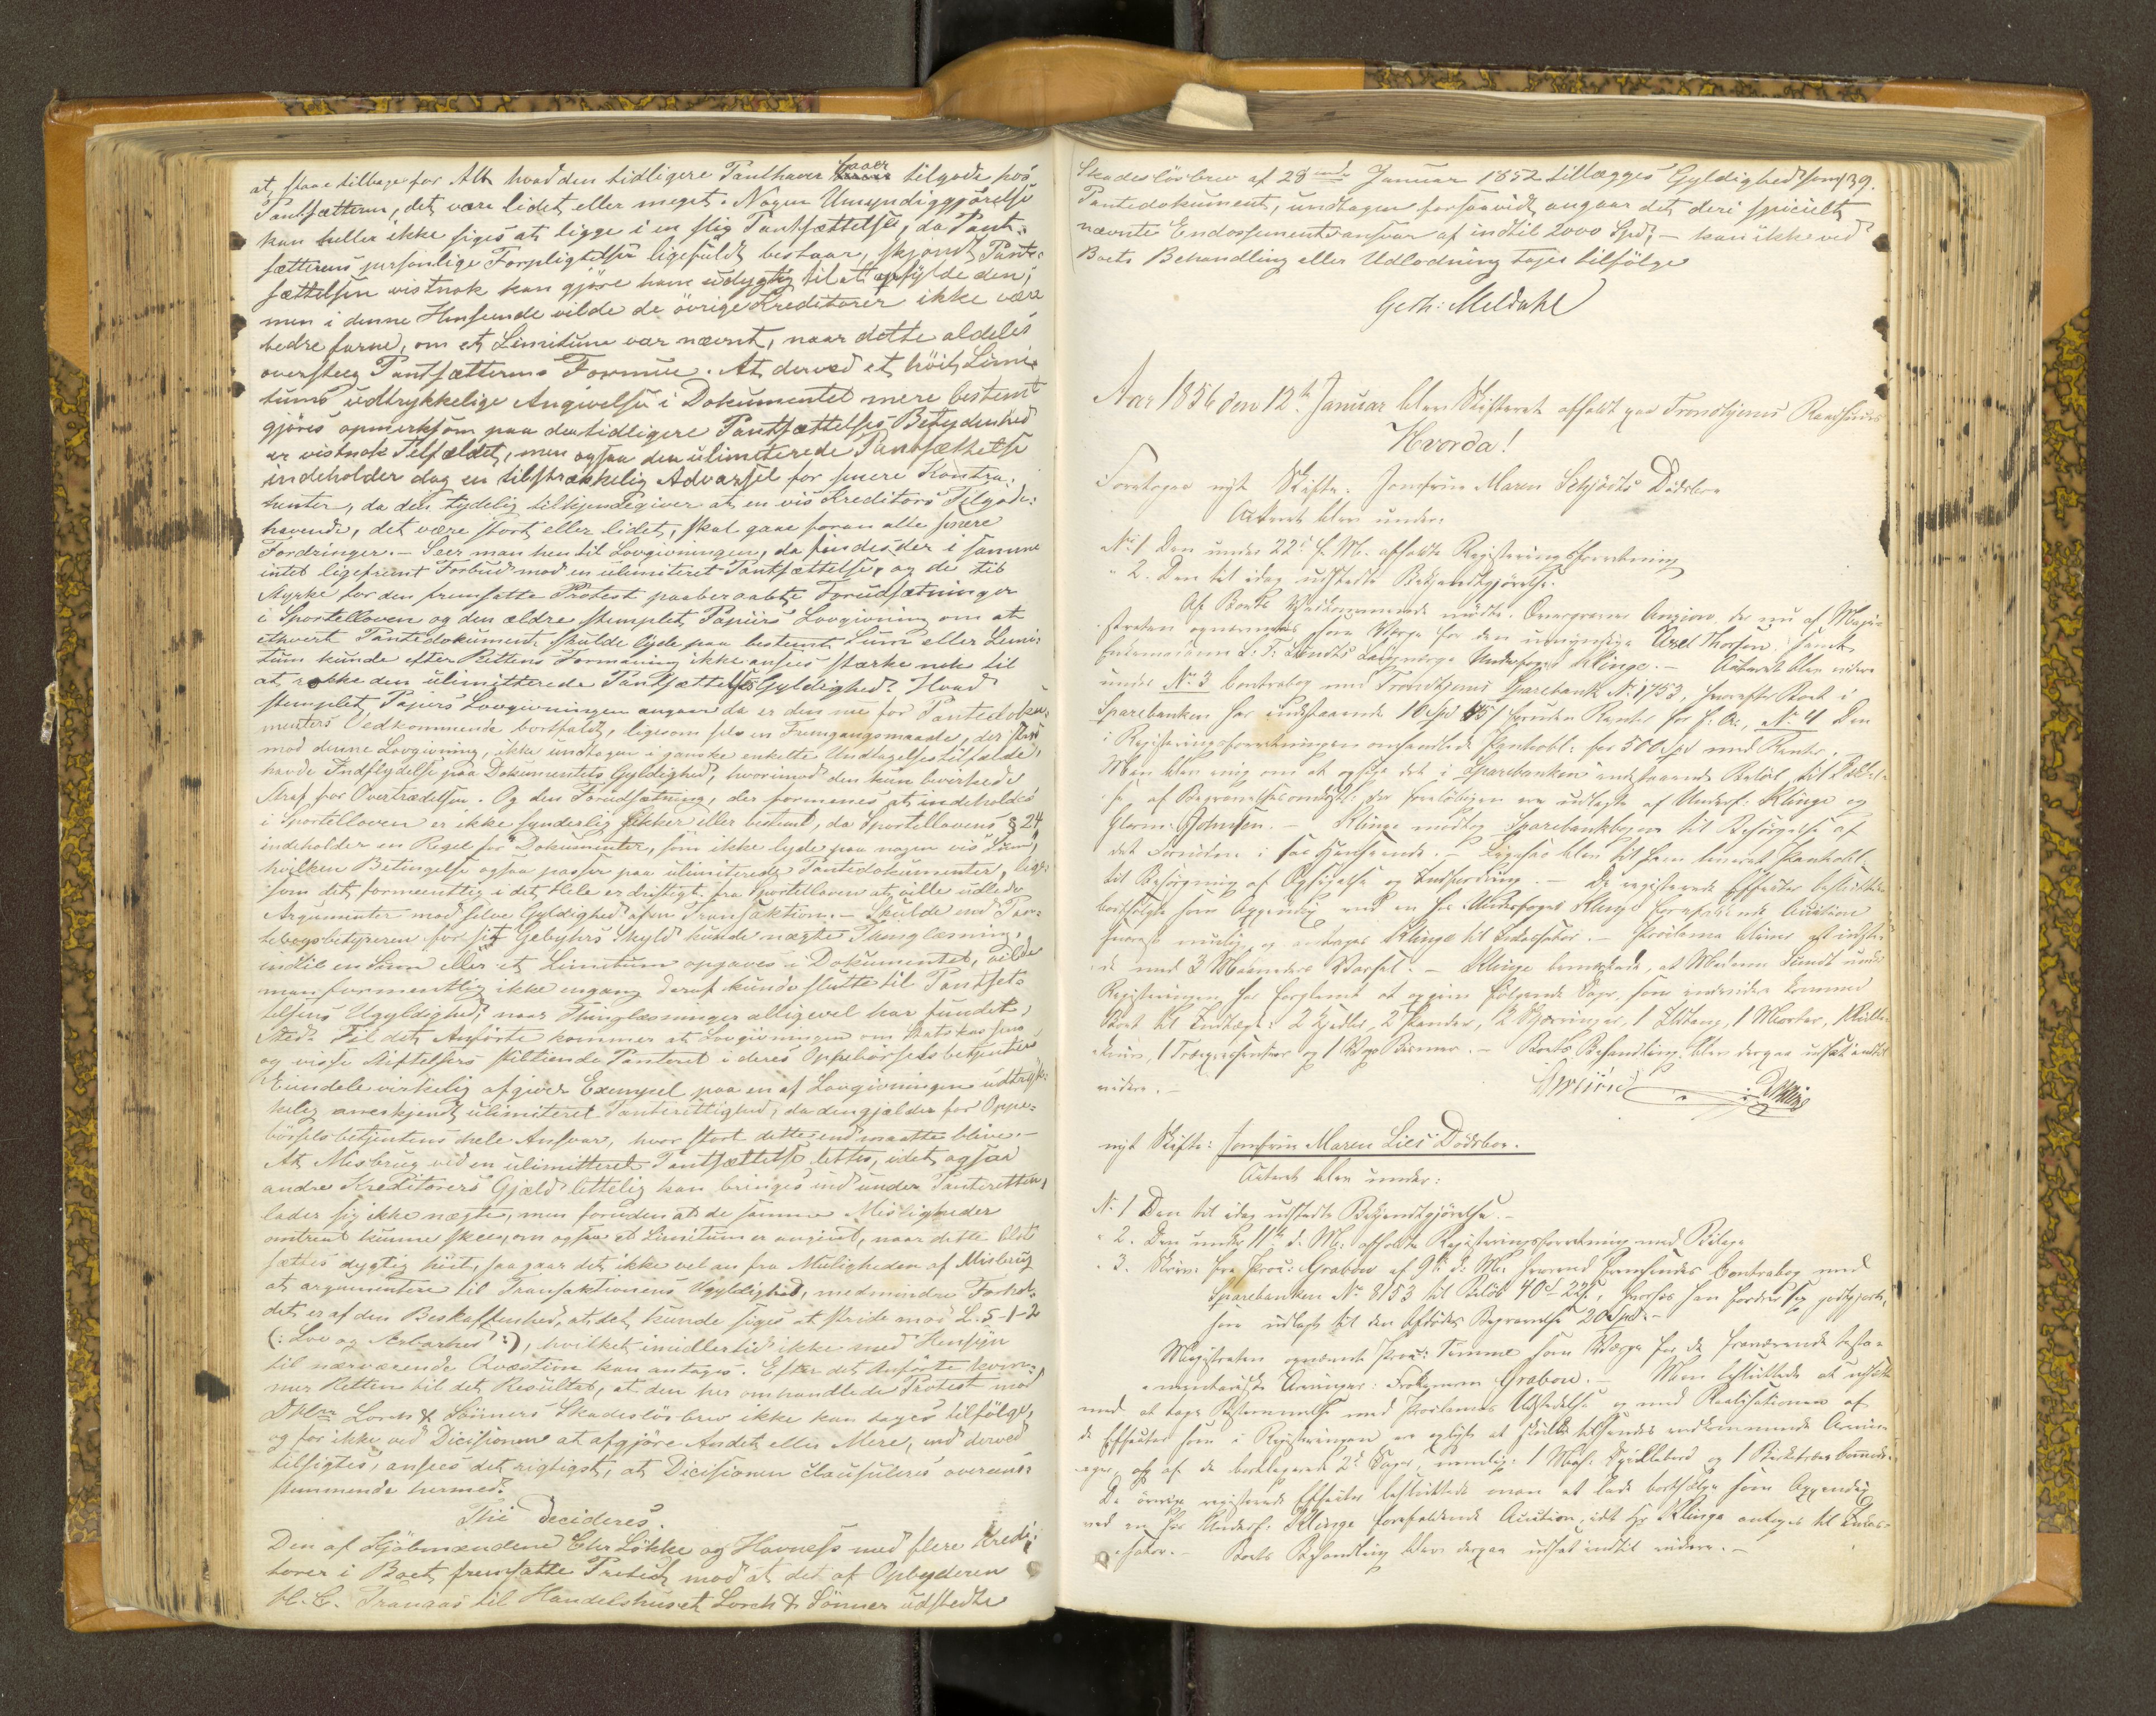 at staae tilbage for Alt hvad den tidligere Panthaver haver tilgode hos
Pantsætteren, det være lidet eller meget. Nogen Umyndiggjörelse
kan heller ikke siges at ligge i en slig Pantsættelse, da Pant-
sætterens personlige Forpligtelse ligefuldt bestaar, skjøndt Pant-
sættelsen vistnok kan gjöre ham udygtig til at opfylde den;
men i denne Henseende vilde de övrige Kreditorer ikke være
bedre farne, om et Limitum var nævnt, naar dette aldeles
oversteg Pantsætterens Formue. At derved et höit Limi-
tums udtrykkelige Angivelse i Dokumentet mere bestemt
gjöres opmerksom paa den tidligere Pantsættelses Betydenhed
er vistnok Tilfældet, men ogsaa den ulimiterede Pantsættelse
indeholder dog en tilstrækkelig Advarsel for senere Kontra-
henter, da den tydelig tilkjendegiver at en vis Kreditors Tilgode-
havende, det være stort eller lidet, skal gaae foran alle senere
Fordringer. – Seer man hen til Lovgivningen, da findes der i samme
intet ligefremt Forbud mod en ulimiteret Pantsættelse, og de til
Styrke for den fremsatte Protest paaberaabte Forudsætninger
i Sportelloven og den ældre stemplet Papiirs Lovgivning om at
ethvert Pantedokument skulde lyde paa bestemt Sum eller Limi-
tum kunde efter Rettens Formening ikke ansees stærke nok til
at rokke den ulimitterede Pantsættelses Gyldighed. Hvad
stemplet Papiirs Lovgivningen angaar da er den nu for Pantedoku-
menters Vedkommende bortfaldt, ligesom selv en Fremgangsmaade, der stred
mod denne Lovgivning, ikke undtagen i ganske enkelte Undtagelsestilfælde,
havde Indflydelse paa Dokumentets Gyldighed, hvorimod den kun bevirkede
Straf for Overtrædelsen. Og den Forudsætning, der formenes at indeholdes
i Sportelloven er ikke synderlig sikker eller bestemt, da Sportellovens § 24
indeholder en Regel for "Dokumenter, som ikke lyde paa nogen vis Sum",
hvilken Betingelse ogsaa passer paa ulimiterede Pantedokumenter, lige-
som det formeentlig i det Hele er dristigt fra Sportelloven at ville udlede
Argumenter mod selve Gyldighed af en Transaktion. – Skulde end Pan-
tebogsbetyreren for sit Gebyhrs Skyld kunde nægte Thinglæsning,
indtil en Sum eller et Limitum opgaves i Dokumentet, vilde
man formentlig ikke engang deraf kunde slutte til Pantsæt-
telsens Ugyldighed naar Thinglæsninger alligevel har fundet
Sted. Til det Anförte kommer at Lovgivningen om Statskassens
og visse Stiftelsers stiltiende Panteret i deres Oppebörselsbetjenters
Eiendele virkelig afgiver Exempel paa en af Lovgivningen udtryk-
kelig anerkjendt ulimiteret Panterettighed, da den gjælder for Oppe-
börselsbetjentens hele Ansvar, hvor stort dette end maatte blive. –
At Misbrug ved en ulimitteret Pantsættelse lettes, idet ogsaa
andre Kreditorers Gjæld lettelig kan bringes ind under Panteretten,
lader sig ikke nægte, men foruden at de samme Misligheder
omtrent kunne skee, om ogsaa et Limitum er angivet, naar dette blot
sættes dygtig höit, saa gaar det ikke vel an fra Muligheden af Misbrug
at argumentere til Transaktionens Ugyldighed, medmindre Forhol-
det er af den Beskaffenhed, at det kunde siges at stride mod L. 5-1-2
(: Lov og Ærbarhed :), hvilket imidlertid ikke med Hensyn
til nærværende Qvæstion kan antages. Efter det Anförte kom-
mer Retten til det Resultat, at den her omhandlede Protest mod
D'Hrr Lorck & Sönners Skadeslösbrev ikke kan tages tilfölge,
og for ikke ved Dicisionen at afgjöre Andet eller Mere, end derved
tilsigtes, ansees det rigtigst, at Dicisionen clausuleres overeens-
stemmende hermed.
Thi Decideres.
Den af Kjöbmændene Chr Lökke og Havness med flere Kredi-
torer i Boet fremsatte Protest mod at det af Opbyderen
H. C. Tranaas til Handelshuset Lorck & Sönner udstedte
Skadeslösbrev af 28de Januar 1852 tillægges Gyldighed som 39.
Pantedokument, undtagen forsaavidt angaar det deri specielt
nævnte Endossementsansvar af indtil 2000 Spd, – kan ikke ved
Boets Behandling eller Udlodning tages tilfölge
Geth: Meldahl
Aar 1856 den 12te Januar blev Skifteret afholdt paa Trondhjems Raadhus
Hvorda!
Foretoges nyt Skifte. Jomfru Maren Schjödts Dödsbo
Acteret blev under:
No 1 Den under 22de f. M. afholdte Registreringsforretning
" 2. Den til idag udstedte Bekjendtgjörelse.
Af Boets Vedkommende mødte
straten opnævnes som Værge for den umyndige Axel Thorsen, samt
Laugværge Underfoged Klinge. – Acteret blev videre
under No 3 Contrabog med Trondhjems Sparebank No 1753, hvorefter Boet i
Sparebanken har indestaaende 16 Spd foruden Renter for f. A., No 4 Den
i Registreringsforretningen omhandlede Pantobl: for 500 Spd med Renter.
Man blev enig om at opsige det i Sparebanken indestaaende Beløb til
af Begravelsesomkost: der foreløbigen ere udlagte af Underf: Klinge og
Johnsen. – Klinge modtog Sparebankbogen til Besørgelse af
det Fornødne i saa Henseende. – Ligesaa blev til ham leveret Pantobl:
til Besørgning af Opsigelse og Inddrivning. – De registrerede Effecter besluttedes
bortsolgte som Appendix ved en hos Underfoged Klinge forefaldende Auction
snarest mulig, og antages Klinge til Incassator. – Proclama bliver at udste-
de med 3 Maaneders Varsel. – Klinge bemærkede, at Madame Lundt under
Registreringen har forglemt at opgive følgende Sager, som endvidere kommer
Boet til Indtægt: 2 Kjedler, 2 Pander, 2 1 Ildtang, 1 Morter, 1
1 og 1 Bismer. – Boets Behandling blev derpaa udsat indtil
videre. –
nyt Skifte: Jomfru Maren Lies Dödsbo.
Acteret blev under:
No 1 Den til idag udstedte Bekjendtgjörelse. –
" 2. Den under 11te d. M. afholdte Registreringsforretning med Bilage
" 3. Skriv. fra Proc: Grabow af 9de d. M. hvorved fremsendes Contrabog med
Sparebanken No 8153 til Beløb 40d 22s, hvorhos han fordrer sig godtgjort,
som udlagt til den Afdödes Begravelse 20 Spd. –
Magistraten opnævnte Proc: Timme som Værge for de fraværende testa-
mentariske Arvinger: Grabow. – Man besluttede at udsætte
med at tage Bestemmelse med Proclamas Udstedelse og med Realisationen af
de Effecter som i Registreringen ere opførte at skulle tilsendes vedkommende Arvin-
ger, og af de 2de Sager, nemlig: 1 Mah. Spillebord og 1 Birketræes Commode.
De övrige registrerede Effecter besluttede man at lade bortsælge som Appendix
ved en hos Underf. Klinge forefaldende Auction, idet Hr Klinge antoges til Incas-
sator. – Boets Behandling blev derpaa udsat indtil videre. –